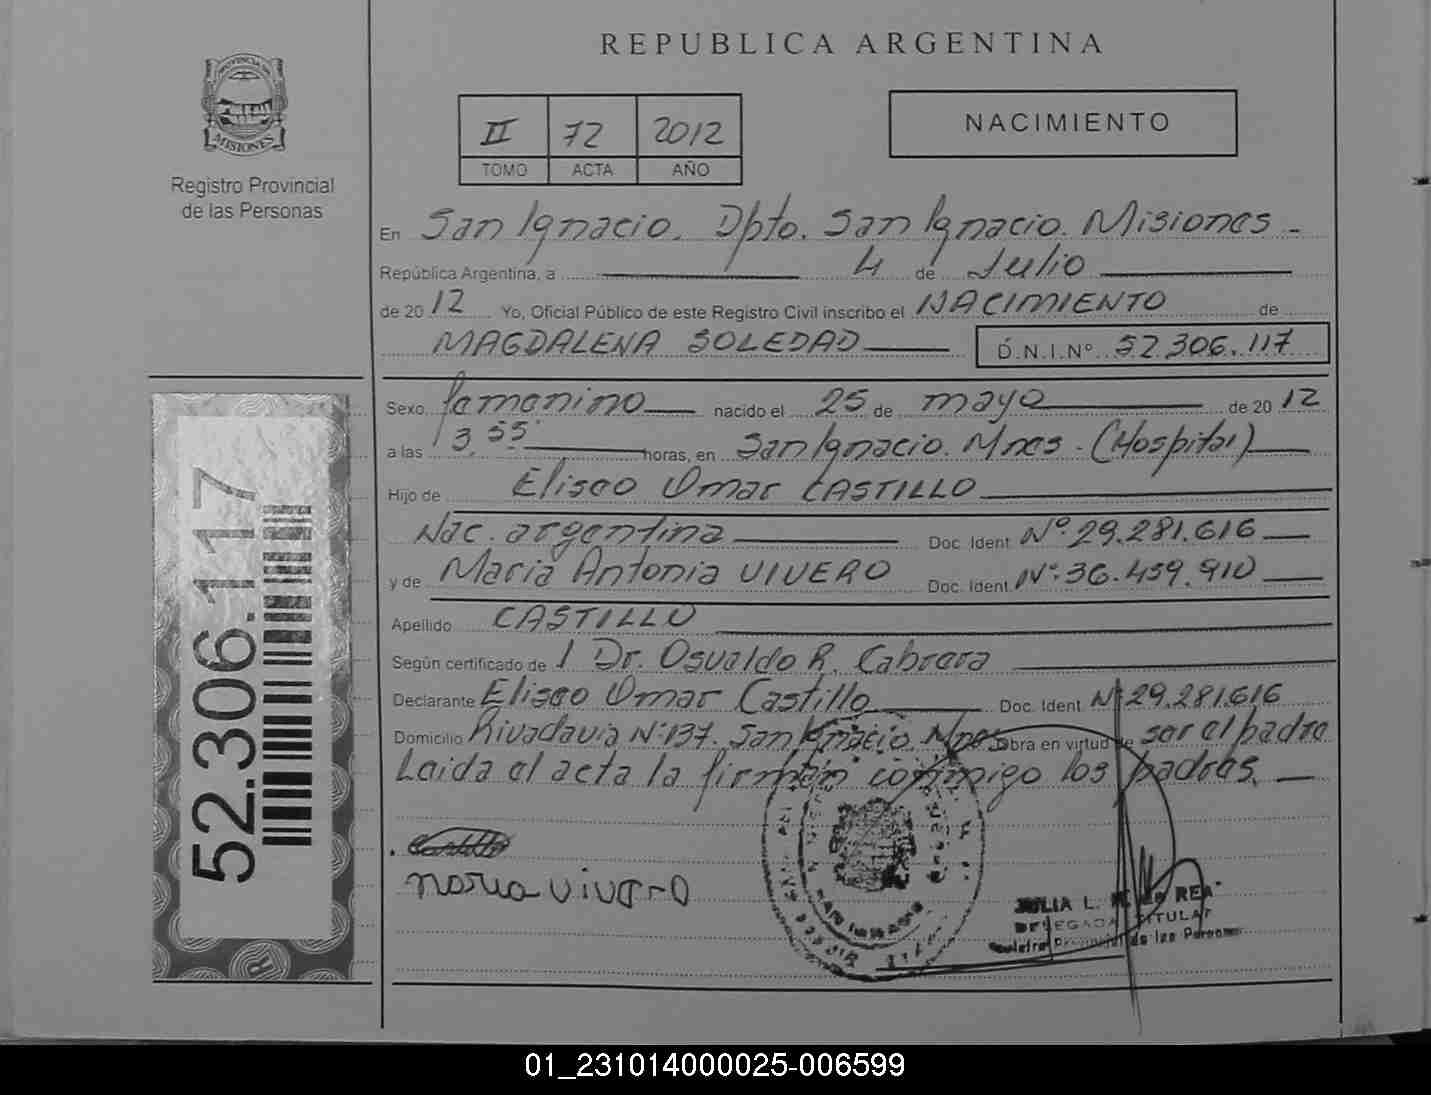 REPUBLICA ARGENTINA
PROVINCIA DE
MISIONES
Registro Provincial
de las Personas
II 72 2012
TOMO ACTA AÑO
NACIMIENTO
En San Ignacio. Dpto. San Ignacio. Misiones -
República Argentina, a 4 de Julio
de 2012 Yo, Oficial Público de este Registro Civil inscribo el NACIMIENTO de
MAGDALENA SOLEDAD D.N.I.Nº 52.306.117
Sexo femenino nacido el 25 de mayo de 2012
a las 13,55 horas, en San Ignacio. Mnes. (Hospital)
Hijo de Eliseo Omar CASTILLO
Nac. argentina Doc. Ident. Nº 29.281.616
y de Maria Antonia VIVERO Doc. Ident. Nº 36.459.910
Apellido CASTILLO
Según certificado de 1 Dr. Osvaldo R. Cabrera
Declarante Eliseo Omar Castillo Doc. Ident. Nº 29.281.616
Domicilio Rivadavia Nº 137. San Ignacio. Mnes. Obra en virtud de ser el padre
Leida el acta la firman conmigo los padres.
52.306.117
Castillo
maria vivero
JULIA L. DE REA
DELEGADA TITULAR
Registro Provincial de las Personas
01_231014000025-006599